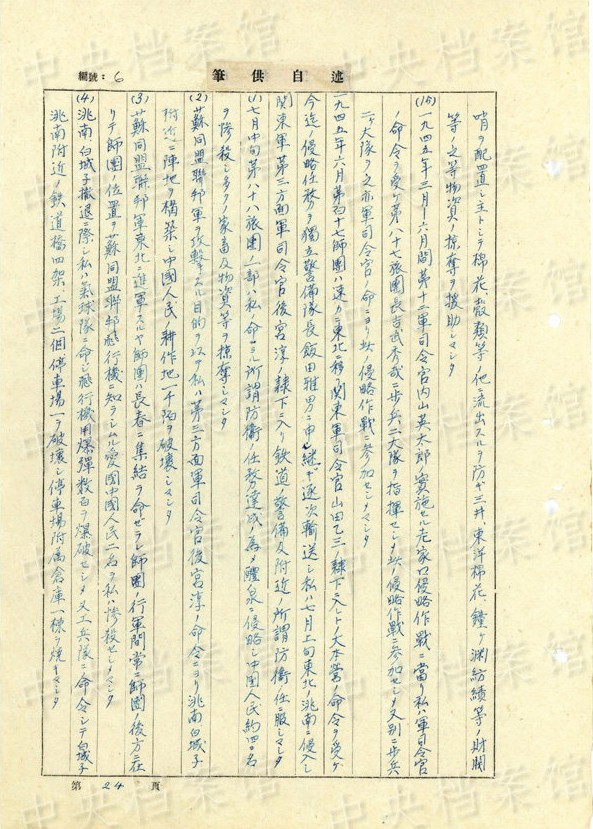 編號：6
筆供自述
哨ヲ配置シ主トシテ棉花、殻類等ノ他ニ流出スルヲ防ギ三井、東洋棉花、鐘ヶ渊紡績等ノ財閥
等ノ之等物資ノ掠奪ヲ援助シマシタ
(15) 一九四五年三月－六月間第十二軍司令官内山英太郎ノ実施セル老家口侵略作戦ニ當リ私ハ軍司令官
ノ命令ヲ受ケ第八十七旅團長吉武秀哉ニ歩兵二大隊ヲ指揮セシメ此ノ侵略作戦ニ参加セシメ又別ニ歩兵
二ヶ大隊ヲ之亦軍司令官ノ命ニヨリ此ノ侵略作戦ニ参加セシメマシタ
一九四五年六月第百十七師團ハ速カニ東北ニ移リ関東軍司令官山田乙三ノ隷下ニ入レトノ大本営ノ命令ヲ受ケ
今迄ノ侵略任務ヲ独立警備隊長飯田雅男ニ申シ継ギ逐次輸送シ私ハ七月上旬東北ノ洮南ニ侵入シ
関東軍第三方面軍司令官後宮淳ノ隷下ニ入リ鉄道ノ警備及附近ノ所謂防衛ニ任ニ服シマシタ
(1) 七月中旬第八十八旅團ノ一部ハ私ノ命セル所謂防衛ノ任務達成ノ為メ醴泉ニ侵略シ中国人民約四〇名
ヲ惨殺シ多クノ家畜及物資等ヲ掠奪シマシタ
(2) 蘇同盟聯邦軍ヲ攻撃スル目的ヲ以テ私ハ第三方面軍司令官後宮淳ノ命令ニヨリ洮南白城子
附近ニ陣地ヲ構築シ中國人民ノ耕作地一千陌ヲ破壊シマシタ
(3) 蘇同盟聯邦軍東北ニ進軍スルヤ師團ハ長春ニ集結ヲ命ゼラレ師團ノ行軍間常ニ師團ノ後方ニ在
リテ師團位置ヲ蘇同盟聯邦飛行機ニ知ラシムル愛國中國人民二名ヲ私ハ惨殺セシメマシタ
(4) 洮南白城子撤退ニ際シ私ハ氣球隊ニ命ジ飛行機用爆弾数百ヲ爆破セシメ又工兵隊ニ命令シテ白城子
洮南附近ノ鉄道橋四架、工場二個停車場一ヲ破壊シ停車場附属倉庫一棟ヲ焼キマシタ
第 24 頁
中央档案馆